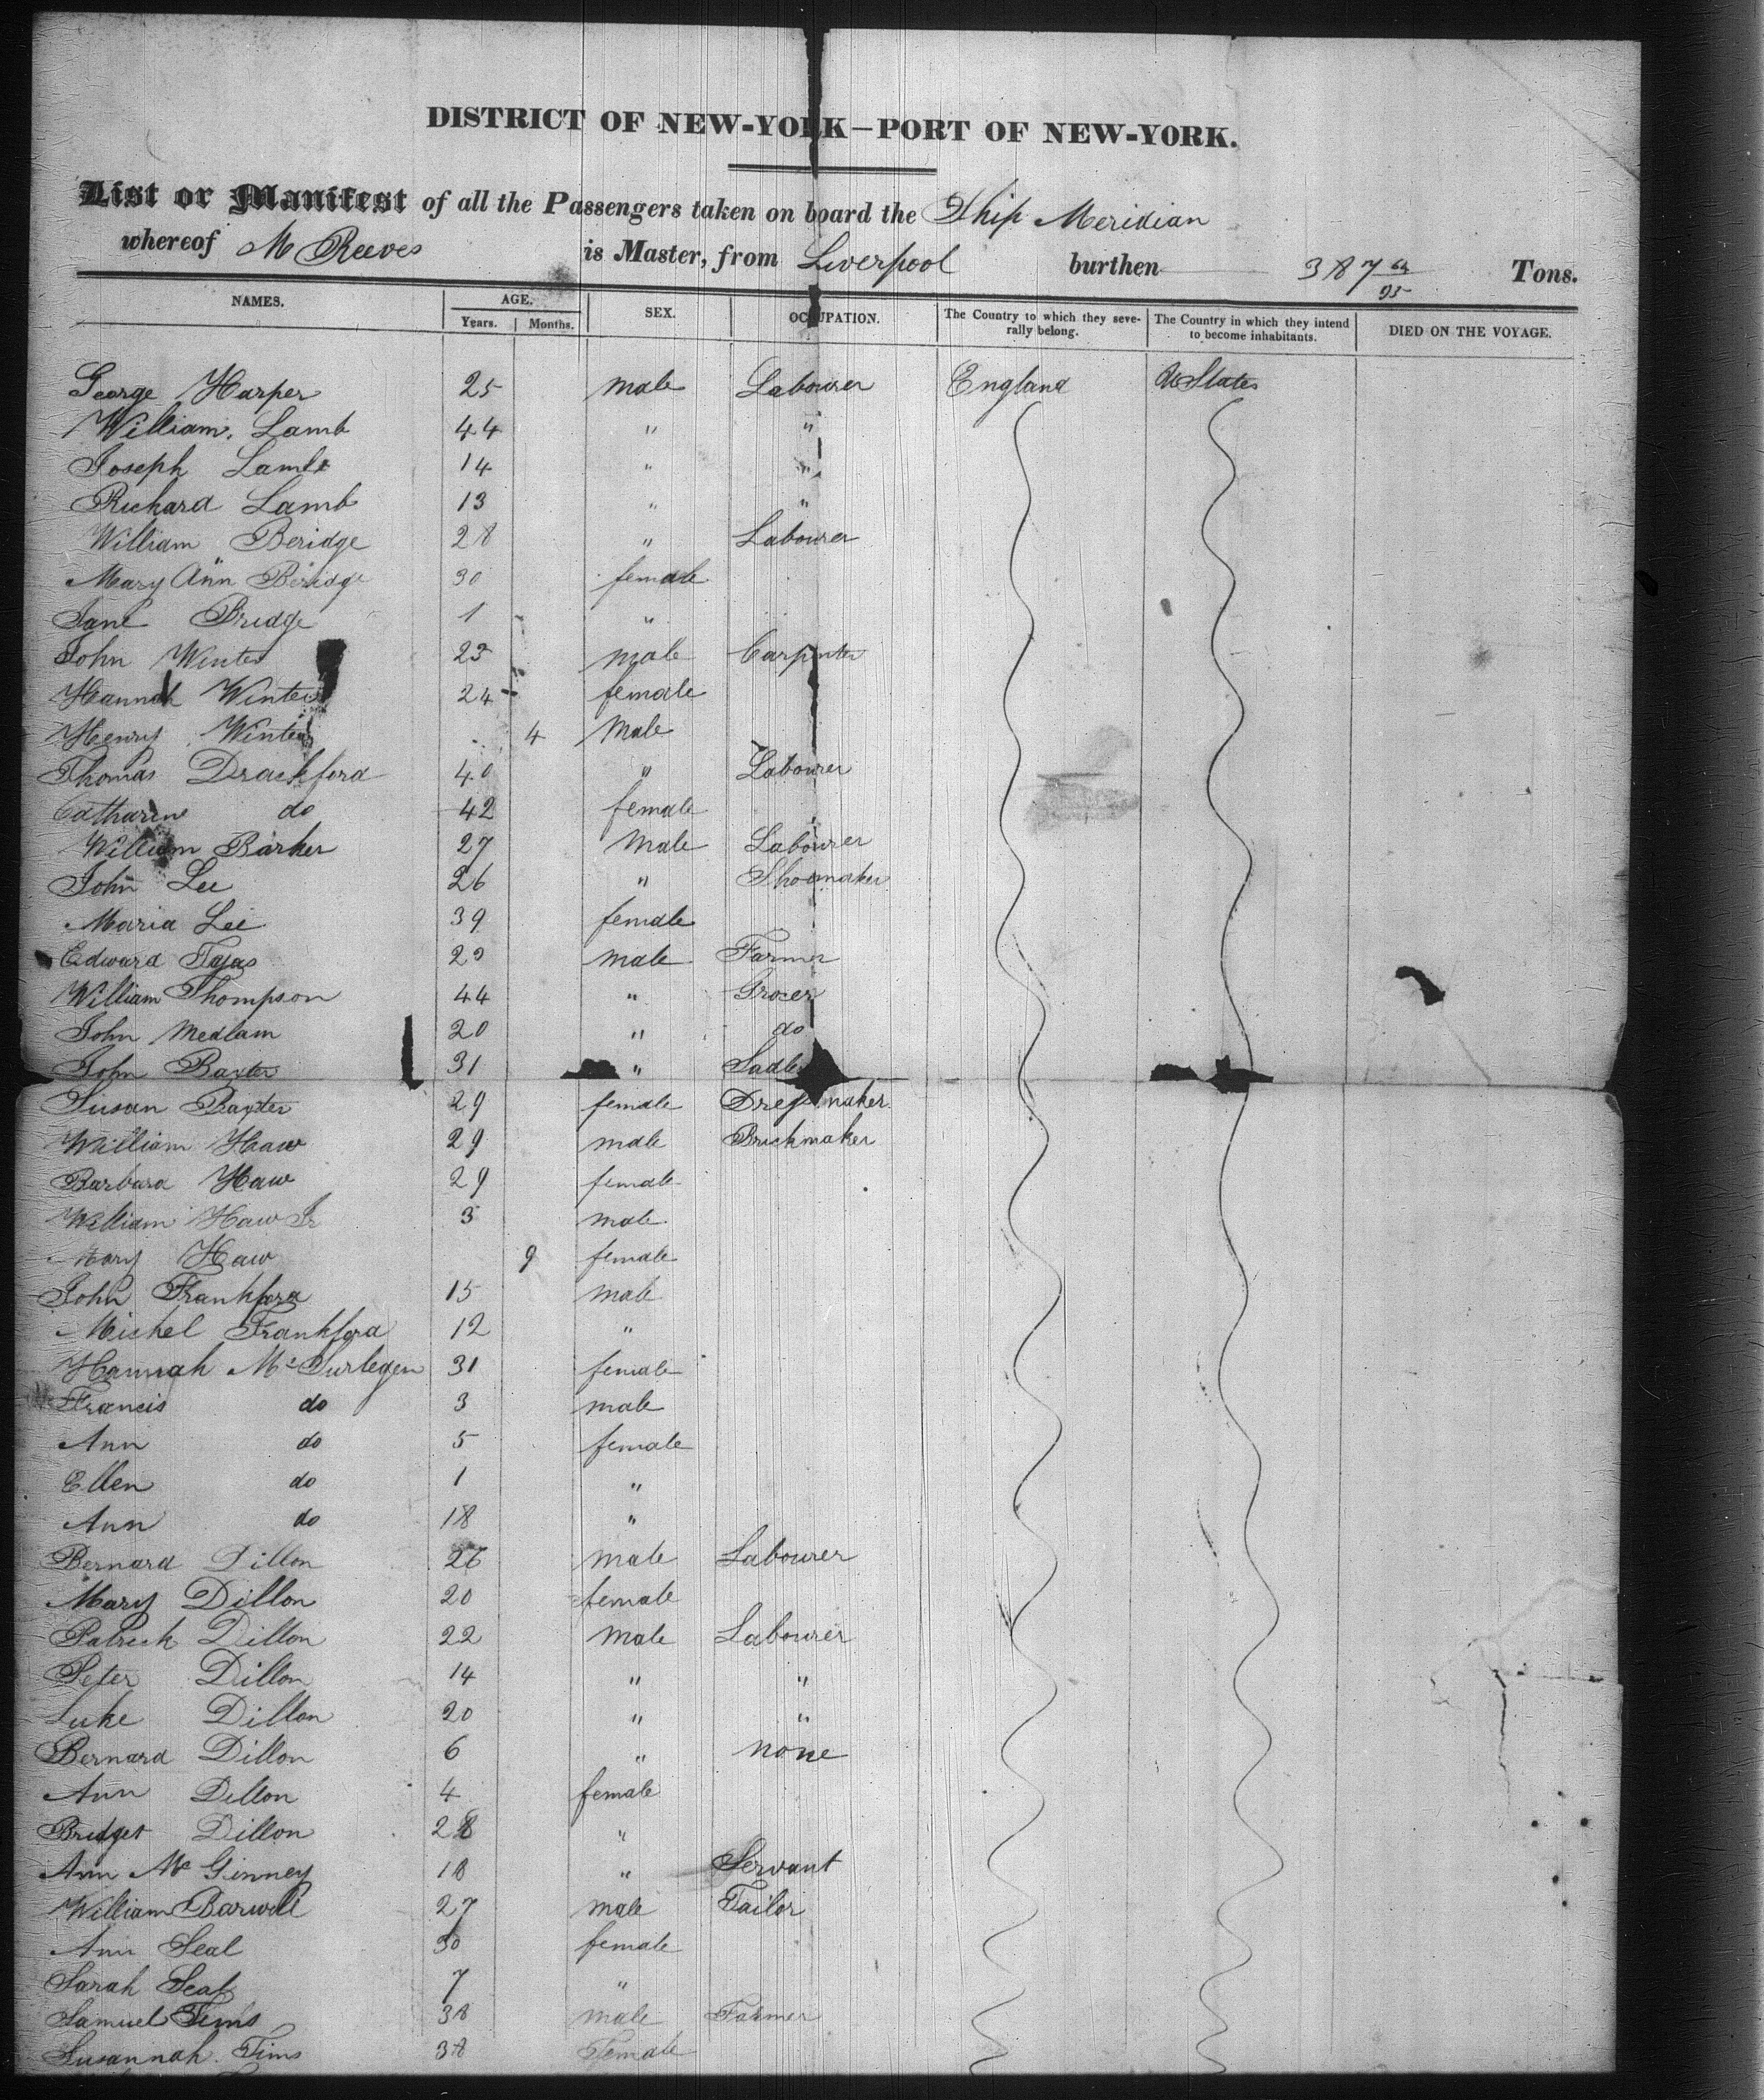 DISTRICT OF NEW-YORK—PORT OF NEW-YORK.
List or Manifest of all the Passengers taken on board the Ship Meridian
whereof M Reeves is Master, from Liverpool burthen 387 64/95 Tons.
NAMES. AGE. SEX. OCCUPATION. The Country to which they severally belong. The Country in which they intend to become inhabitants. DIED ON THE VOYAGE.
Years. Months.
George Harper 25 male Labourer England U States
William Lamb 44 " "
Joseph Lamb 14 " "
Richard Lamb 13 " "
William Beridge 28 " Labourer
Mary Ann Beridge 30 female
Jane Bridge 1 "
John Winter 23 male Carpenter
Hannah Winter 24 female
Henry Winter 4 Male
Thomas Drackford 40 " Labourer
Catharine do 42 female
William Barker 27 Male Labourer
John Lee 26 " Shoemaker
Maria Lee 39 female
Edward 23 male Farmer
William Thompson 44 " Grocer
John Medlam 20 " do
John Baxter 31 " Sadler
Susan Baxter 29 female Dressmaker
William Haw 29 male Brickmaker
Barbara Haw 29 female
William Haw Jr 3 male
Mary Haw 9 female
John Frankford 15 male
Michel Frankford 12 "
Hannah 31 female
Francis do 3 male
Ann do 5 female
Ellen do 1 "
Ann do 18 "
Bernard Dillon 26 male Labourer
Mary Dillon 20 female
Patrick Dillon 22 male Labourer
Peter Dillon 14 " "
Luke Dillon 20 " "
Bernard Dillon 6 " none
Ann Dillon 4 female
Bridget Dillon 28 "
Ann Mc Ginney 18 " Servant
William Barwell 27 male Tailor
Ann Seal 30 female
Sarah Seal 7 "
Samuel Tims 38 male Farmer
Susannah Tims 38 Female